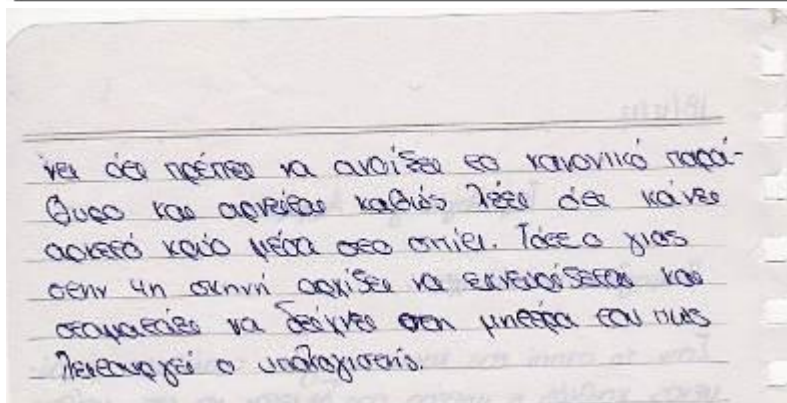 νει ότι πρέπει να ανοίξει το κανονικό παρά-
θυρο και αρνείται καθώς λέει ότι κάνει
αρκετό κρύο μέσα στο σπίτι. Τότε ο γιος
στην 4η σκηνή αρχίζει να εκνευρίζεται και
σταματάει να δείχνει στη μητέρα του πως
λειτουργεί ο υπολογιστής.